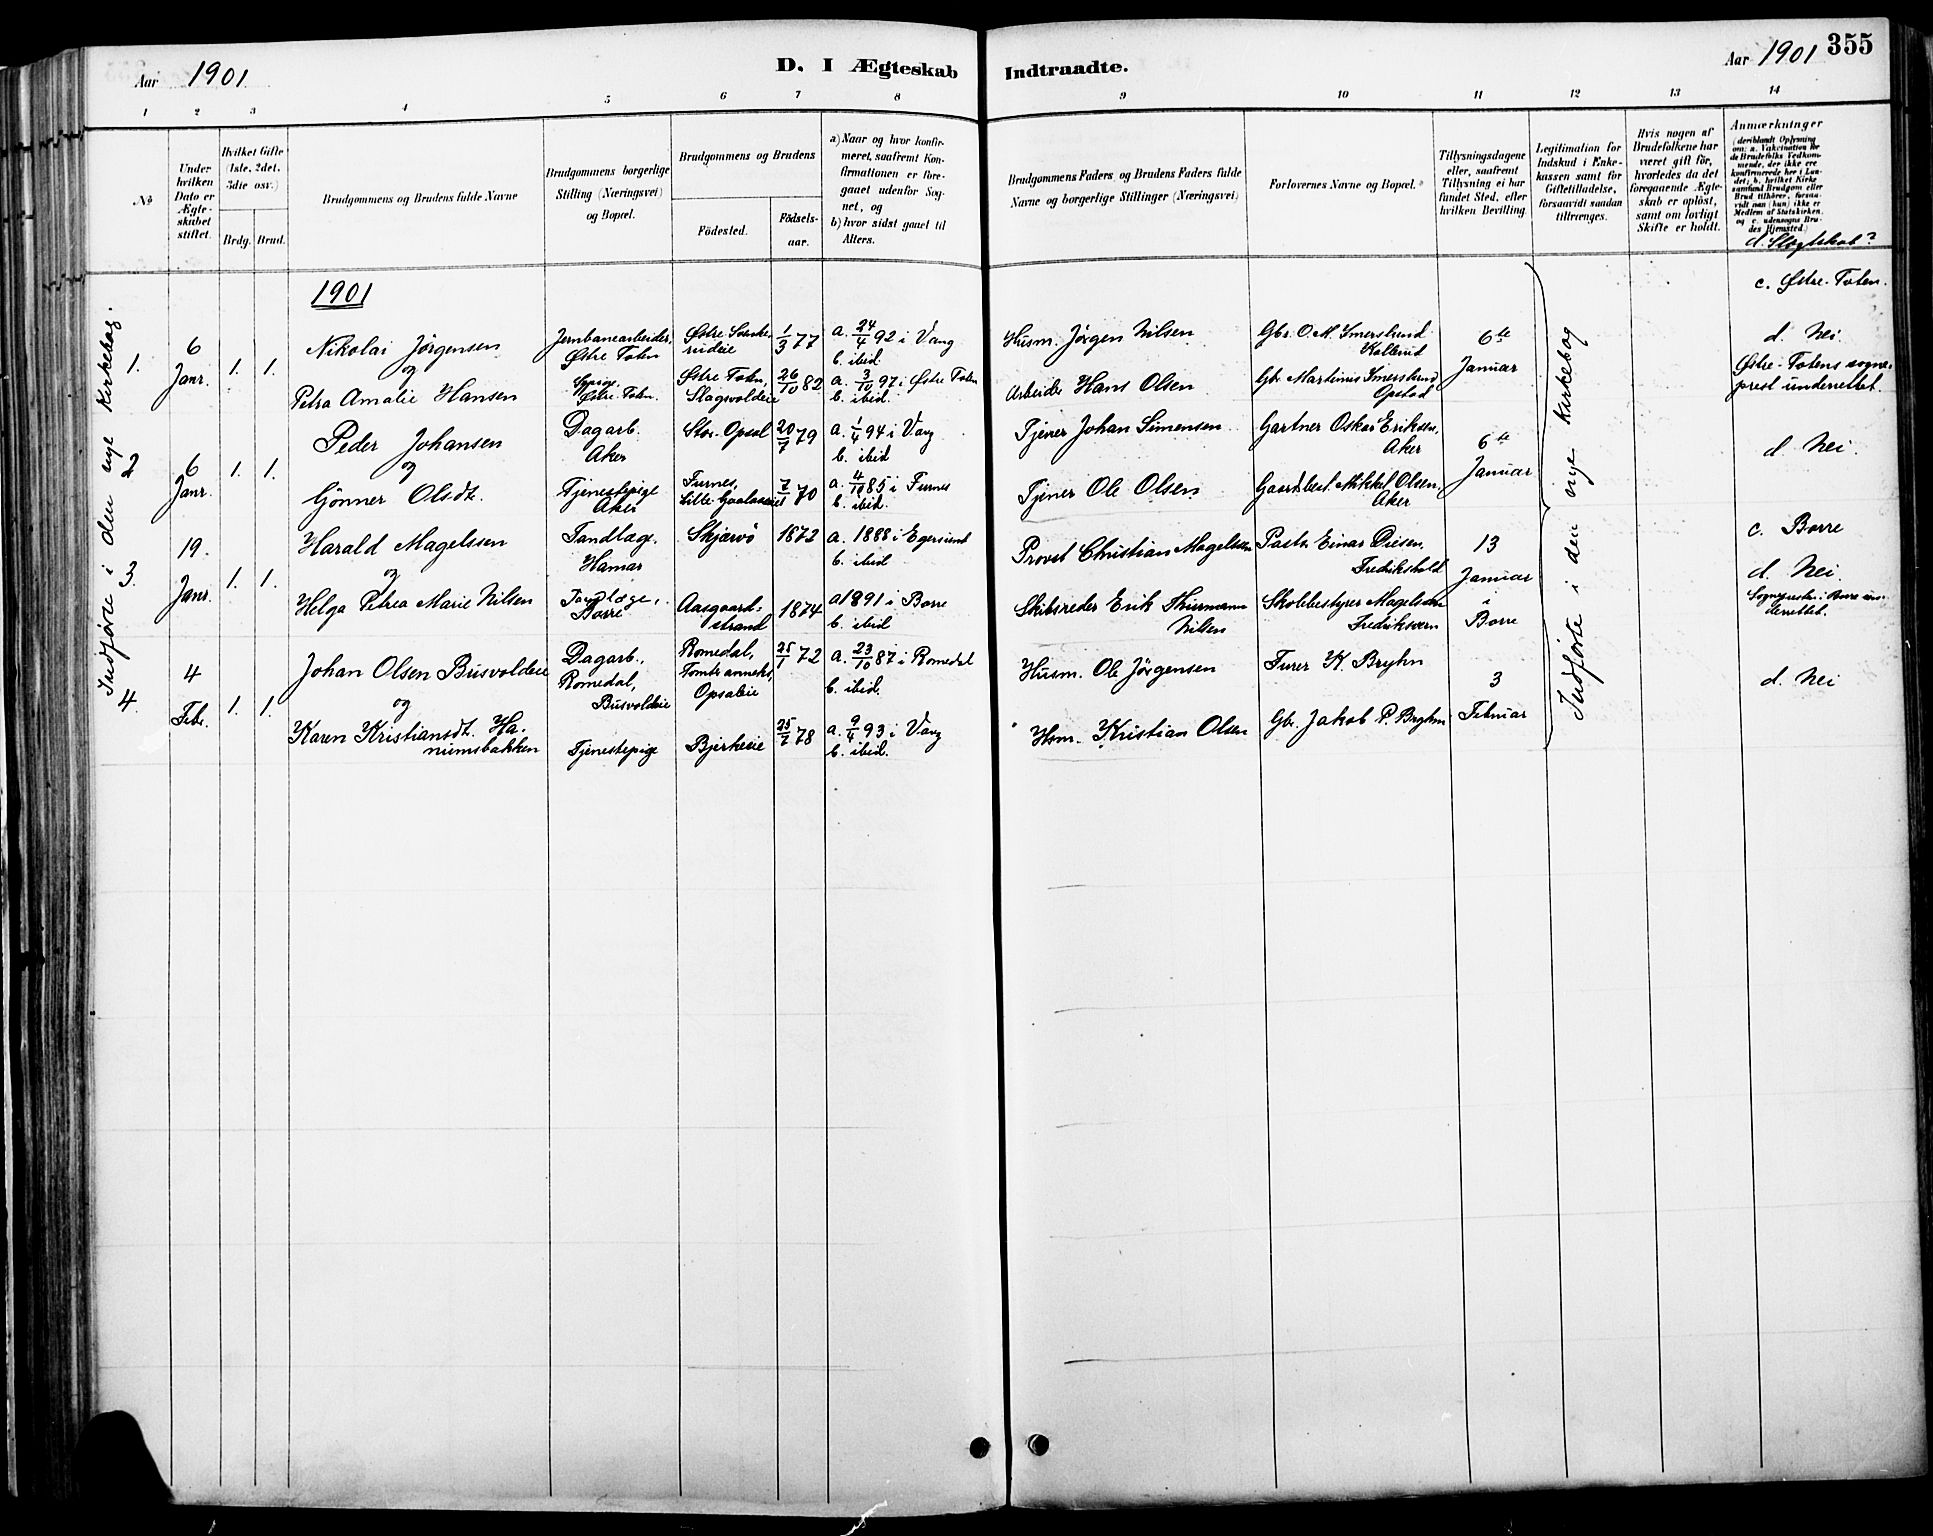 Aar 1901
D. I Ægteskab Indtraadte.
Aar 1901 355
1 2 3 4 5 6 7 8 9 10 11 12 13 14
No
Under hvilken Dato er Ægteskabet stiftet.
Hvilket Gifte (1ste, 2det, 3die osv.)
Brdg. Brud.
Brudgommens og Brudens fulde Navne
Brudgommens borgerlige Stilling (Næringsvei) og Bopæl.
Brudgommens og Brudens
Födested.
Födselsaar.
a) Naar og hvor konfirmeret, saafremt Konfirmationen er foregaaet udenfor Sognet, og
b) hvor sidst gaaet til Alters.
Brudgommens Faders og Brudens Faders fulde Navne og borgerlige Stillinger (Næringsvei)
Forlovernes Navne og Bopæl.
Tillysningsdagene eller, saafremt Tillysning ei har fundet Sted, efter hvilken Bevilling.
Legitimation for Indskud i Enkekassen samt for Giftetilladelse, forsaavidt saadan tiltrænges.
Hvis nogen af Brudefolkene har været gift för, hvorledes da det foregaaende Ægteskab er oplöst, samt om lovligt Skifte er holdt.
Anmærkninger (deriblandt Oplysning om: a. Vakcination for de Brudefolks Vedkommende, der ikke ere konfirmerede her i Landet; b. hvilket Kirkesamfund Brudgom eller Brud tilhörer, forsaavidt han (hun) ikke er Medlem af Statskirken, og c. udensogns Brudes Hjemsted.)
d. Slægtskab?
1901
c. Østre-Toten.
Indførte i den nye Kirkebog.
1. 6 Janr. 1. 1.
Nikolai Jörgensen
og
Petra Amalie Hansen
Jernbanearbeider, Østre Toten
Pige. Østre Toten.
Østre
Østre Toten,
1/3 77
26/10 82
a. 24/4 92 i Vang
b. ibid.
a. 3/10 97 i Østre Toten
b. ibid.
Husm. Jörgen Nilsen
Arbeider Hans Olsen
Gbr. O. M. Imerslund
Kollerud
Gbr. Martinius Imerslund
Opstad
6te Januar
d. Nei.
Østre-Totens sogneprest underrettet.
2 6 Janr. 1. 1.
Peder Johansen
og
Gönner Olsdt.
Dagarb.
Aker
Tjenestepige
Aker
Stor-Opsal
Furnes,
20/7 79
7/1 70
a. 1/4 94 i Vang
b. ibid
a. 4/10 85 i Furnes
b. ibid.
Tjener Johan Simensen
Tjener Ole Olsen
Gartner Oskar Eriksen,
Aker
Gaardbest. Mikkel Olsen,
Aker
6te Januar
d. Nei.
3. 19. Janr. 1. 1.
Harald Magelssen
og
Helga Petrea Marie Nilsen
Tandlæge.
Hamar
Tandlæge,
Borre
Skjærvö
Aasgaardstrand
1872
1874
a. 1888 i Egersund
b. ibid
a 1891 i Borre
b. ibid
Provst Christian Magelssen
Skibsreder Erik Thurmann
Nilsen
Pastor Einar Diesen,
Fredrikshald
Skolebestyrer Magelssen
Fredriksværn
13 Januar
i Borre
c. Borre
d. Nei.
Sognepresten i Borre underrettet.
4. 4 Febr. 1. 1.
Johan Olsen Busvoldeie
og
Karen Kristiansdt. Haniumsbakken
Dagarb.,
Romedal,
Busvoldeie
Tjenestepige
Romedal,
Tomter anneks,
Opsaleie
Bjerkeeie
25/1 72
25/7 78
a. 23/10 87 i Romedal
b. ibid.
a. 9/4 93 i Vang
b. ibid.
Husm. Ole Jörgensen
Hsm. Kristian Olsen
Furer K. Bryhn
Gbr. Jakob P. Bryhn
3 Februar
d. Nei
Indførte i den nye Kirkebog